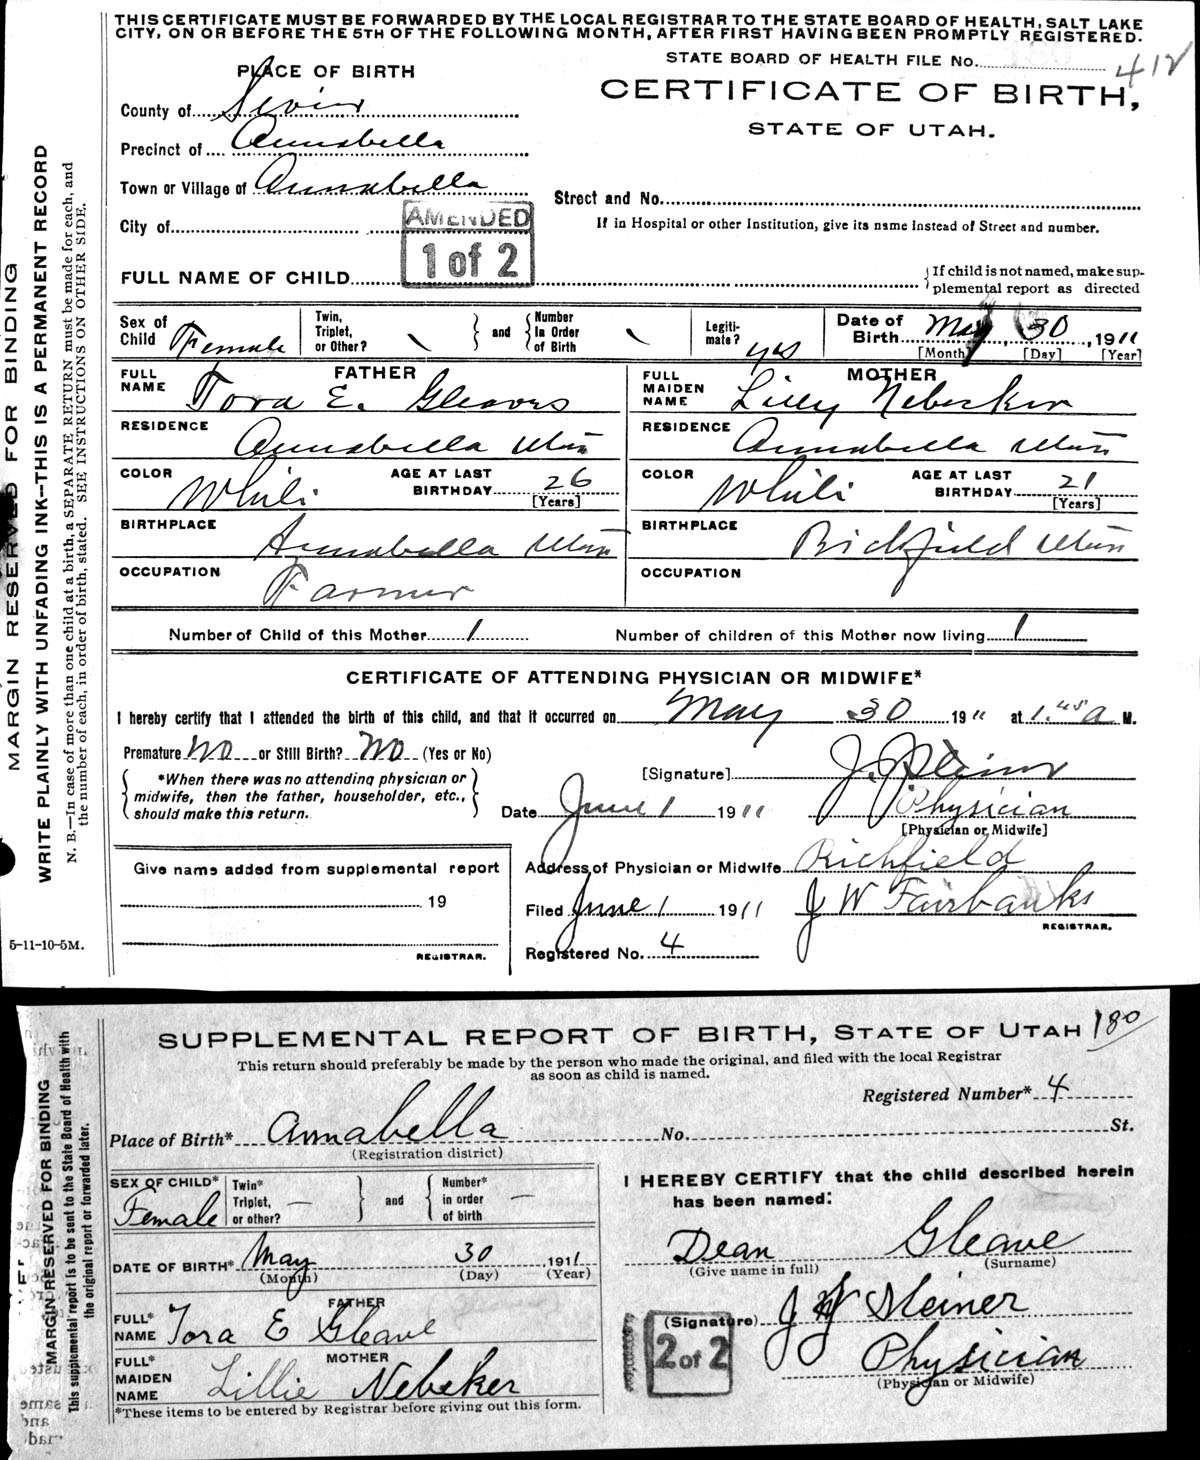 THIS CERTIFICATE MUST BE FORWARDED BY THE LOCAL REGISTRAR TO THE STATE BOARD OF HEALTH, SALT LAKE
CITY, ON OR BEFORE THE 5TH OF THE FOLLOWING MONTH, AFTER FIRST HAVING BEEN PROMPTLY REGISTERED.
STATE BOARD OF HEALTH FILE No. 412
PLACE OF BIRTH
CERTIFICATE OF BIRTH,
STATE OF UTAH.
County of Sevier
Precinct of Annabella
Town or Village of Annabella
Street and No.
City of
If in Hospital or other Institution, give its name instead of Street and number.
AMENDED
1 of 2
FULL NAME OF CHILD
If child is not named, make sup-
plemental report as directed
Sex of Child Female
Twin, Triplet, or Other?
and
Number in Order of Birth
Legiti-mate? yes
Date of Birth May 30, 1911
[Month] [Day] [Year]
FATHER
FULL NAME Tora E. Gleaves
MOTHER
FULL MAIDEN NAME Lilly Nebeker
RESIDENCE Annabella Utah
RESIDENCE Annabella Utah
COLOR White AGE AT LAST BIRTHDAY 26 [Years]
COLOR White AGE AT LAST BIRTHDAY 21 [Years]
BIRTHPLACE Annabella Utah
BIRTHPLACE Richfield Utah
OCCUPATION Farmer
OCCUPATION
Number of Child of this Mother 1 Number of children of this Mother now living 1
CERTIFICATE OF ATTENDING PHYSICIAN OR MIDWIFE*
I hereby certify that I attended the birth of this child, and that it occurred on May 30 1911 at 1.45 a M.
Premature No or Still Birth? No (Yes or No)
*When there was no attending physician or
midwife, then the father, householder, etc.,
should make this return.
[Signature]
Date June 1 1911
Physician
[Physician or Midwife]
Address of Physician or Midwife Richfield
Give name added from supplemental report
19
REGISTRAR.
Filed June 1 1911 J W Fairbanks
REGISTRAR.
Registered No. 4
5-11-10-5M.
MARGIN RESERVED FOR BINDING
WRITE PLAINLY WITH UNFADING INK—THIS IS A PERMANENT RECORD
N. B.—In case of more than one child at a birth, a SEPARATE RETURN must be made for each, and
the number of each, in order of birth, stated. SEE INSTRUCTIONS ON OTHER SIDE.
SUPPLEMENTAL REPORT OF BIRTH, STATE OF UTAH 180
This return should preferably be made by the person who made the original, and filed with the local Registrar
as soon as child is named.
Registered Number* 4
Place of Birth* Annabella No. St.
(Registration district)
SEX OF CHILD* Female
Twin* Triplet, or other? —
and
Number* in order of birth —
I HEREBY CERTIFY that the child described herein
has been named:
DATE OF BIRTH* May 30, 1911
(Month) (Day) (Year)
Dean Gleave
(Give name in full) (Surname)
FATHER
FULL* NAME Tora E Gleave
(Signature) J W Steiner
2 of 2
MOTHER
FULL* MAIDEN NAME Lillie Nebeker
Physician
(Physician or Midwife)
*These items to be entered by Registrar before giving out this form.
MARGIN RESERVED FOR BINDING
This supplemental report is to be sent to the State Board of Health with
the original report or forwarded later.